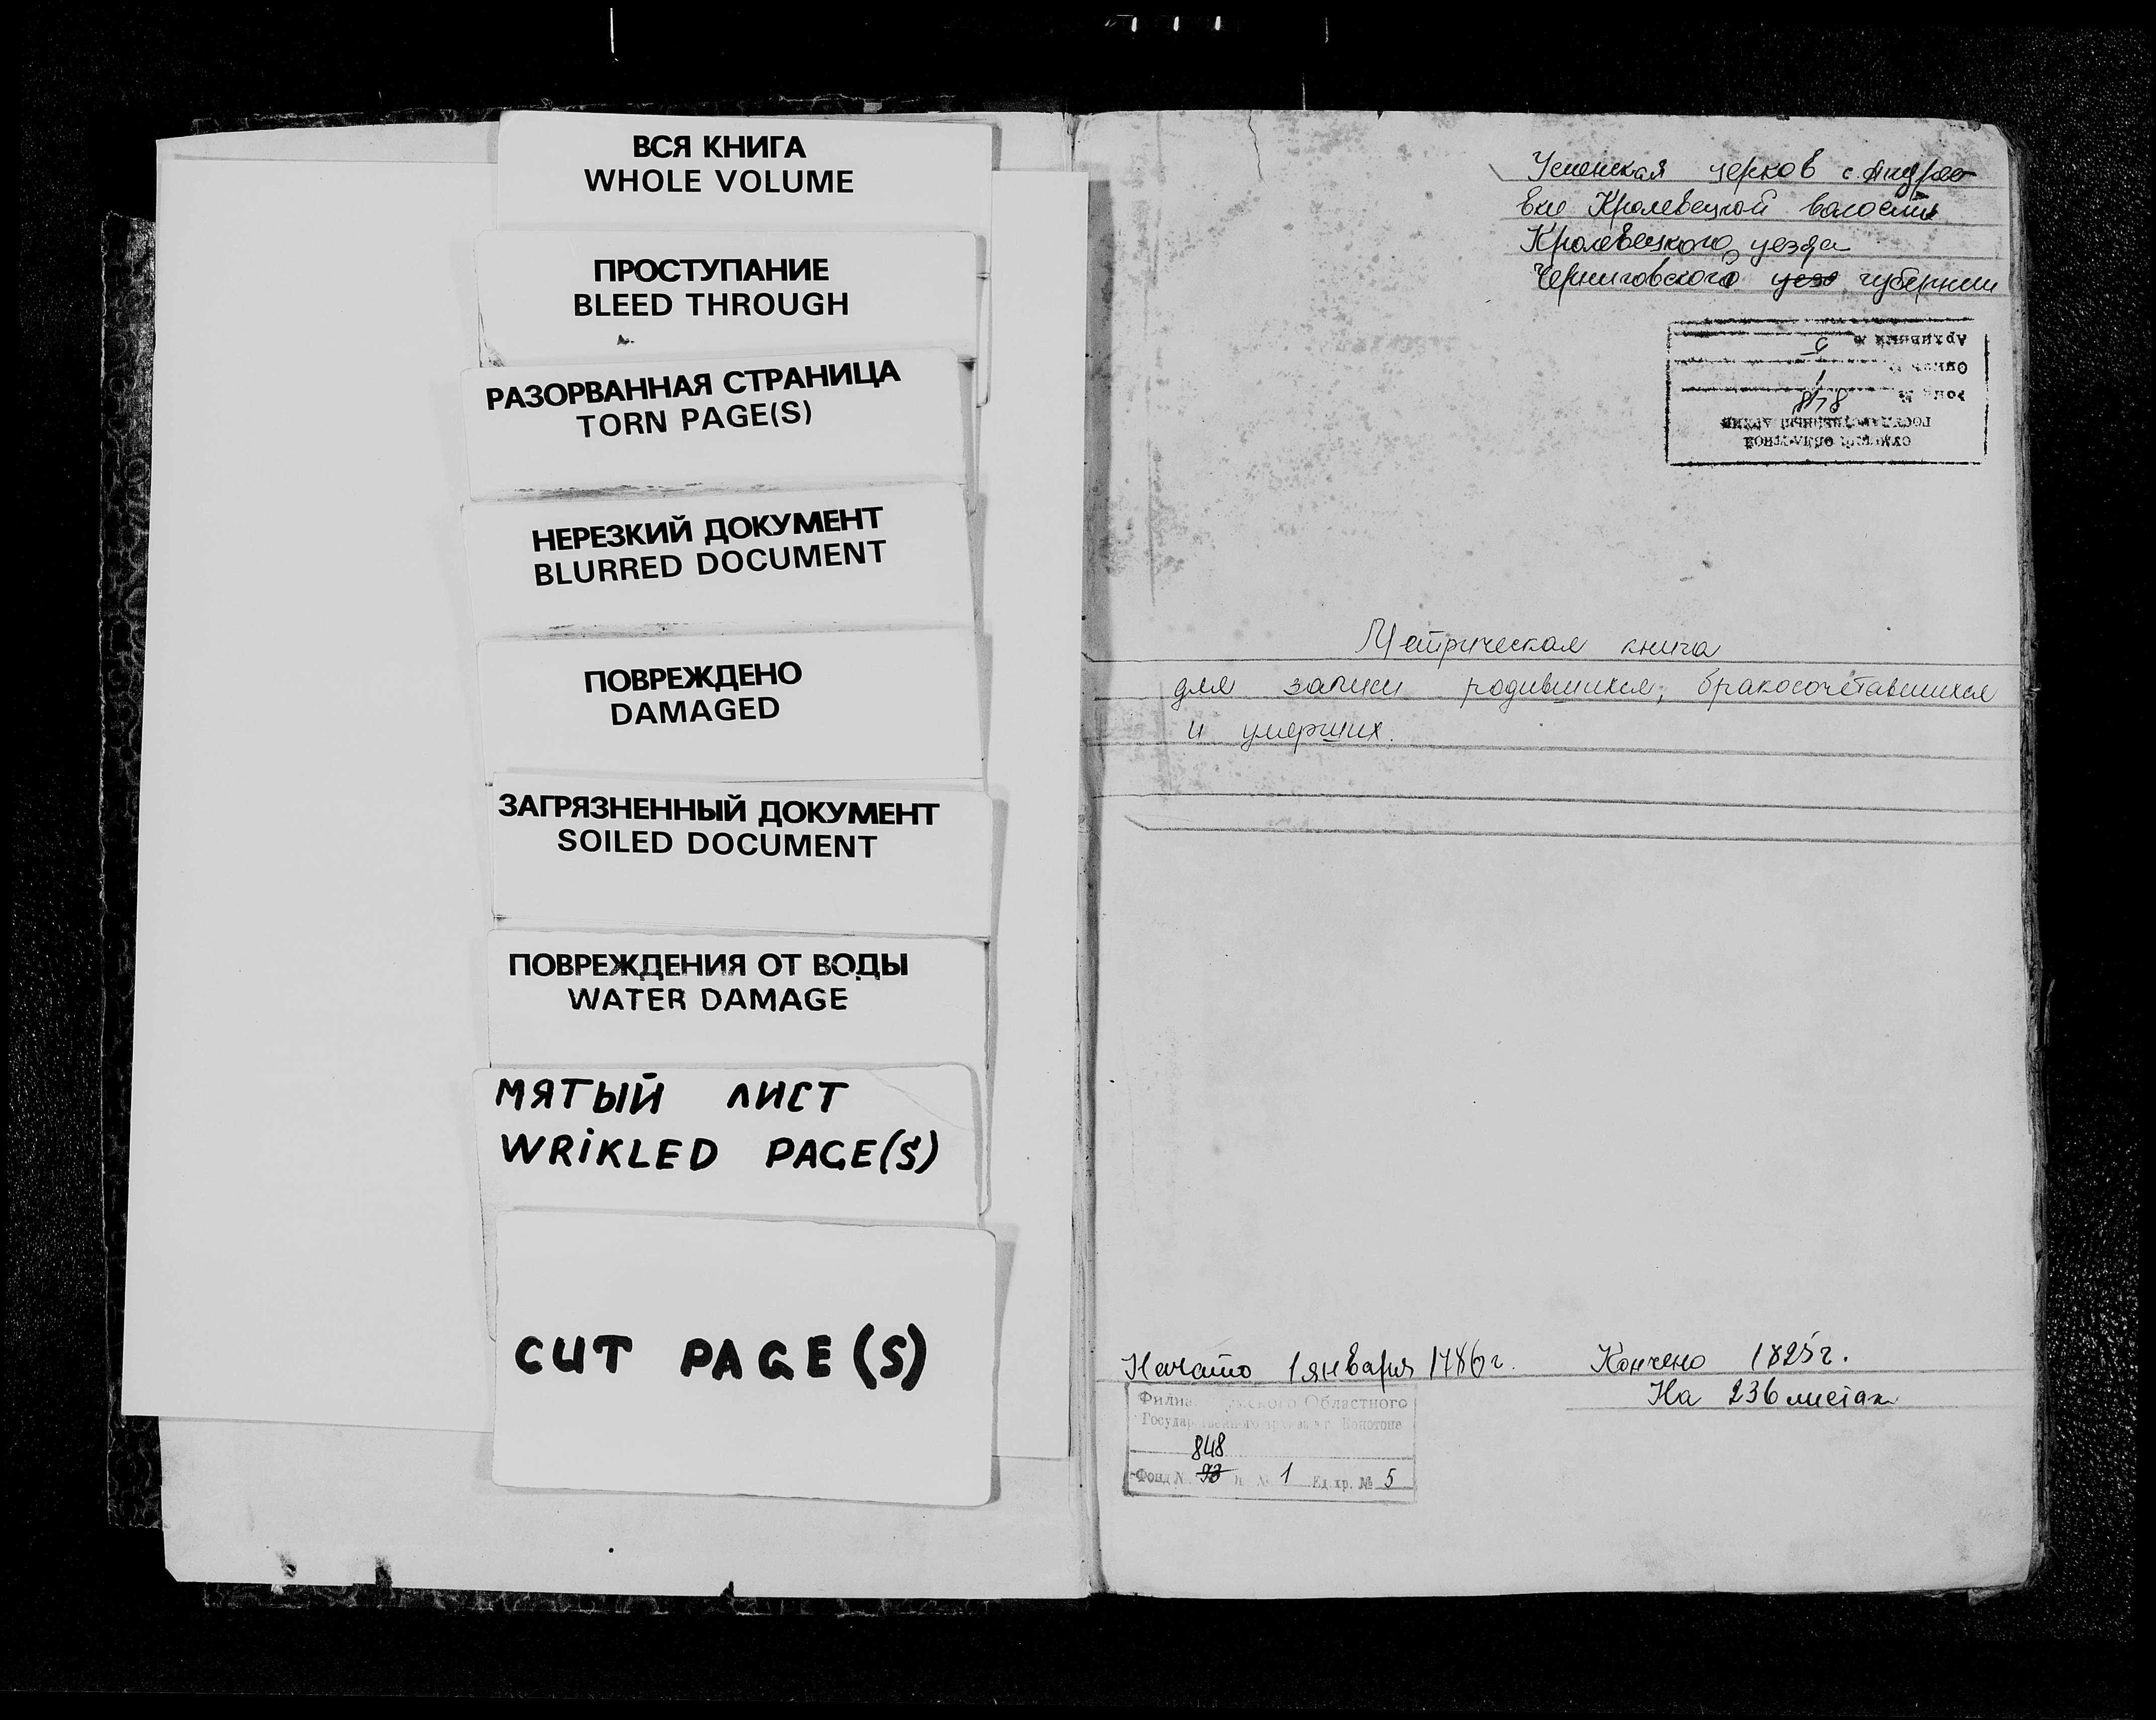 ВСЯ КНИГА
WHOLE VOLUME
ПРОСТУПАНИЕ
BLEED THROUGH
РАЗОРВАННАЯ СТРАНИЦА
TORN PAGE(S)
НЕРЕЗКИЙ ДОКУМЕНТ
BLURRED DOCUMENT
ПОВРЕЖДЕНО
DAMAGED
ЗАГРЯЗНЕННЫЙ ДОКУМЕНТ
SOILED DOCUMENT
ПОВРЕЖДЕНИЯ ОТ ВОДЫ
WATER DAMAGE
МЯТЫЙ ЛИСТ
WRiKLED PAGE(S)
CUT PAGE(S)
Успенская церков с. Андрее
вки Кролевецкой волости
Кролевецкого уезда
Черниговского уезд губернии
Архивный № 5
Опись № 1
Фонд № 848
ГОСУДАРСТВЕННЫЙ АРХИВ
СУМСКОЙ ОБЛАСТНОЙ
Метрическая книга
для записи родившихся, бракосочетавшихся
и умерших.
Начато 1 января 1786 г. Кончено 1825 г.
На 236 листах
Филиал Сумского Областного
Государственного архива в г. Конотопе
848
Фонд № 93 1 Ед. хр. № 5